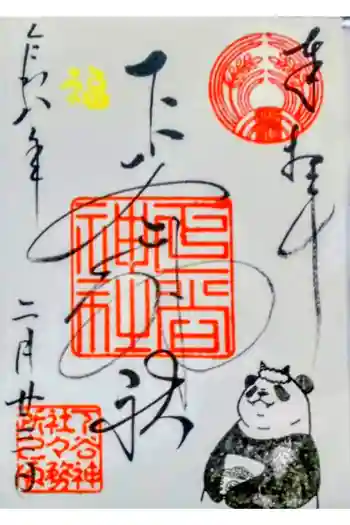 奉拝
下谷神社
福
令和八年
二月廿二日
下谷神社
下谷神
社々務
所之印